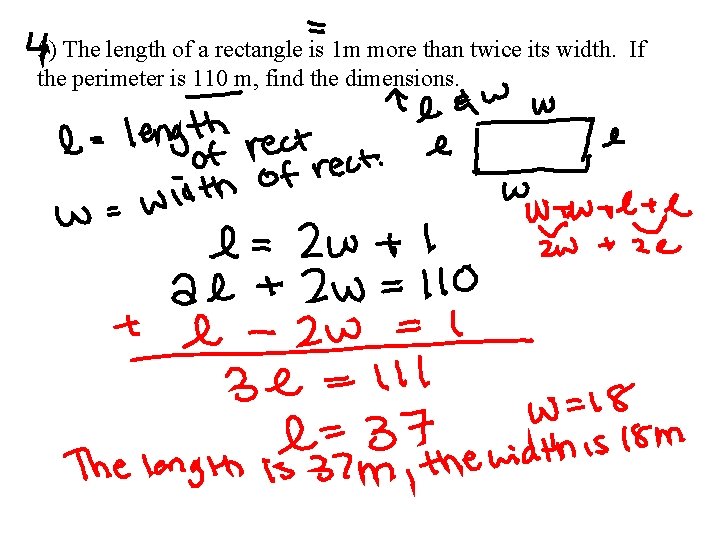 =
4) The length of a rectangle is 1m more than twice its width. If
the perimeter is 110 m, find the dimensions.
↑ l & w
l = length of rect
w = width of rect.
w
l
l
w
w+w+l+l
2w + 2l
l = 2w + 1
2l + 2w = 110
+ l - 2w = 1
3l = 111
l = 37
w = 18
The length is 37m, the width is 18m